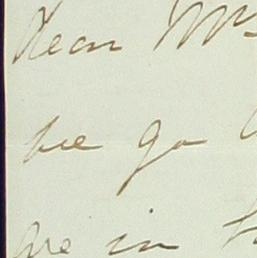 dear Mrs
we go
are in